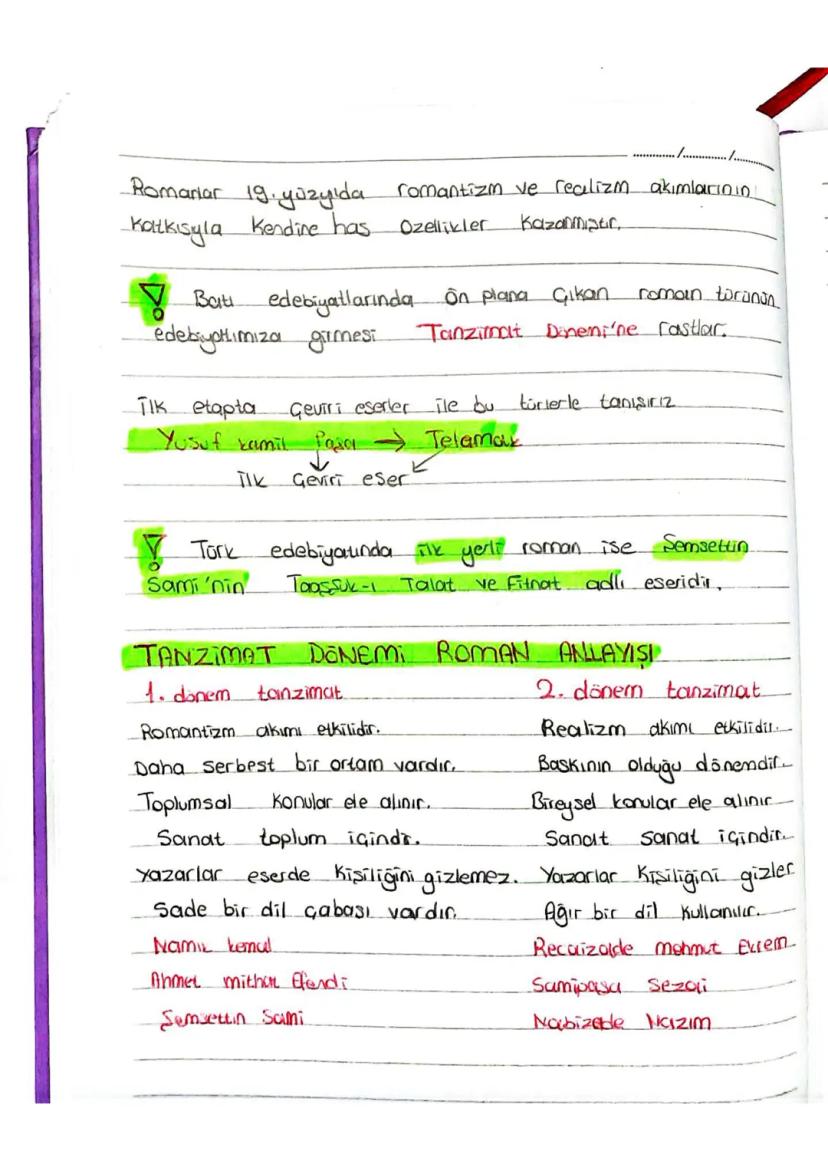 ............/............/.......
Romanlar 19.yüzyılda romantizm ve realizm akımlarının
katkısıyla kendine has özellikler kazanmıştır.
Batı edebiyatlarında ön plana çıkan roman türünün
edebiyatımıza girmesi Tanzimat Dönemi'ne rastlar.
İlk etapta çeviri eserler ile bu türlerle tanışırız
Yusuf kamil Paşa → Telamak
İlk çeviri eser
Türk edebiyatında ilk yerli roman ise Şemsettin
Sami'nin Taaşşuk-ı Talat ve Fitnat adlı eseridir.
TANZİMAT DÖNEMİ ROMAN ANLAYIŞI
1. dönem tanzimat 2. dönem tanzimat
Romantizm akımı etkilidir. Realizm akımı etkilidir.
Daha serbest bir ortam vardır. Baskının olduğu dönemdir.
Toplumsal konular ele alınır. Bireysel konular ele alınır
Sanat toplum içindir. Sanat sanat içindir.
Yazarlar eserde kişiliğini gizlemez. Yazarlar kişiliğini gizler
Sade bir dil çabası vardır. Ağır bir dil kullanılır.
Namık kemal Recaizade mahmut Ekrem
Ahmet mithat Efendi Samipaşa Sezai
Şemsettin Sami Nabizade Nazım